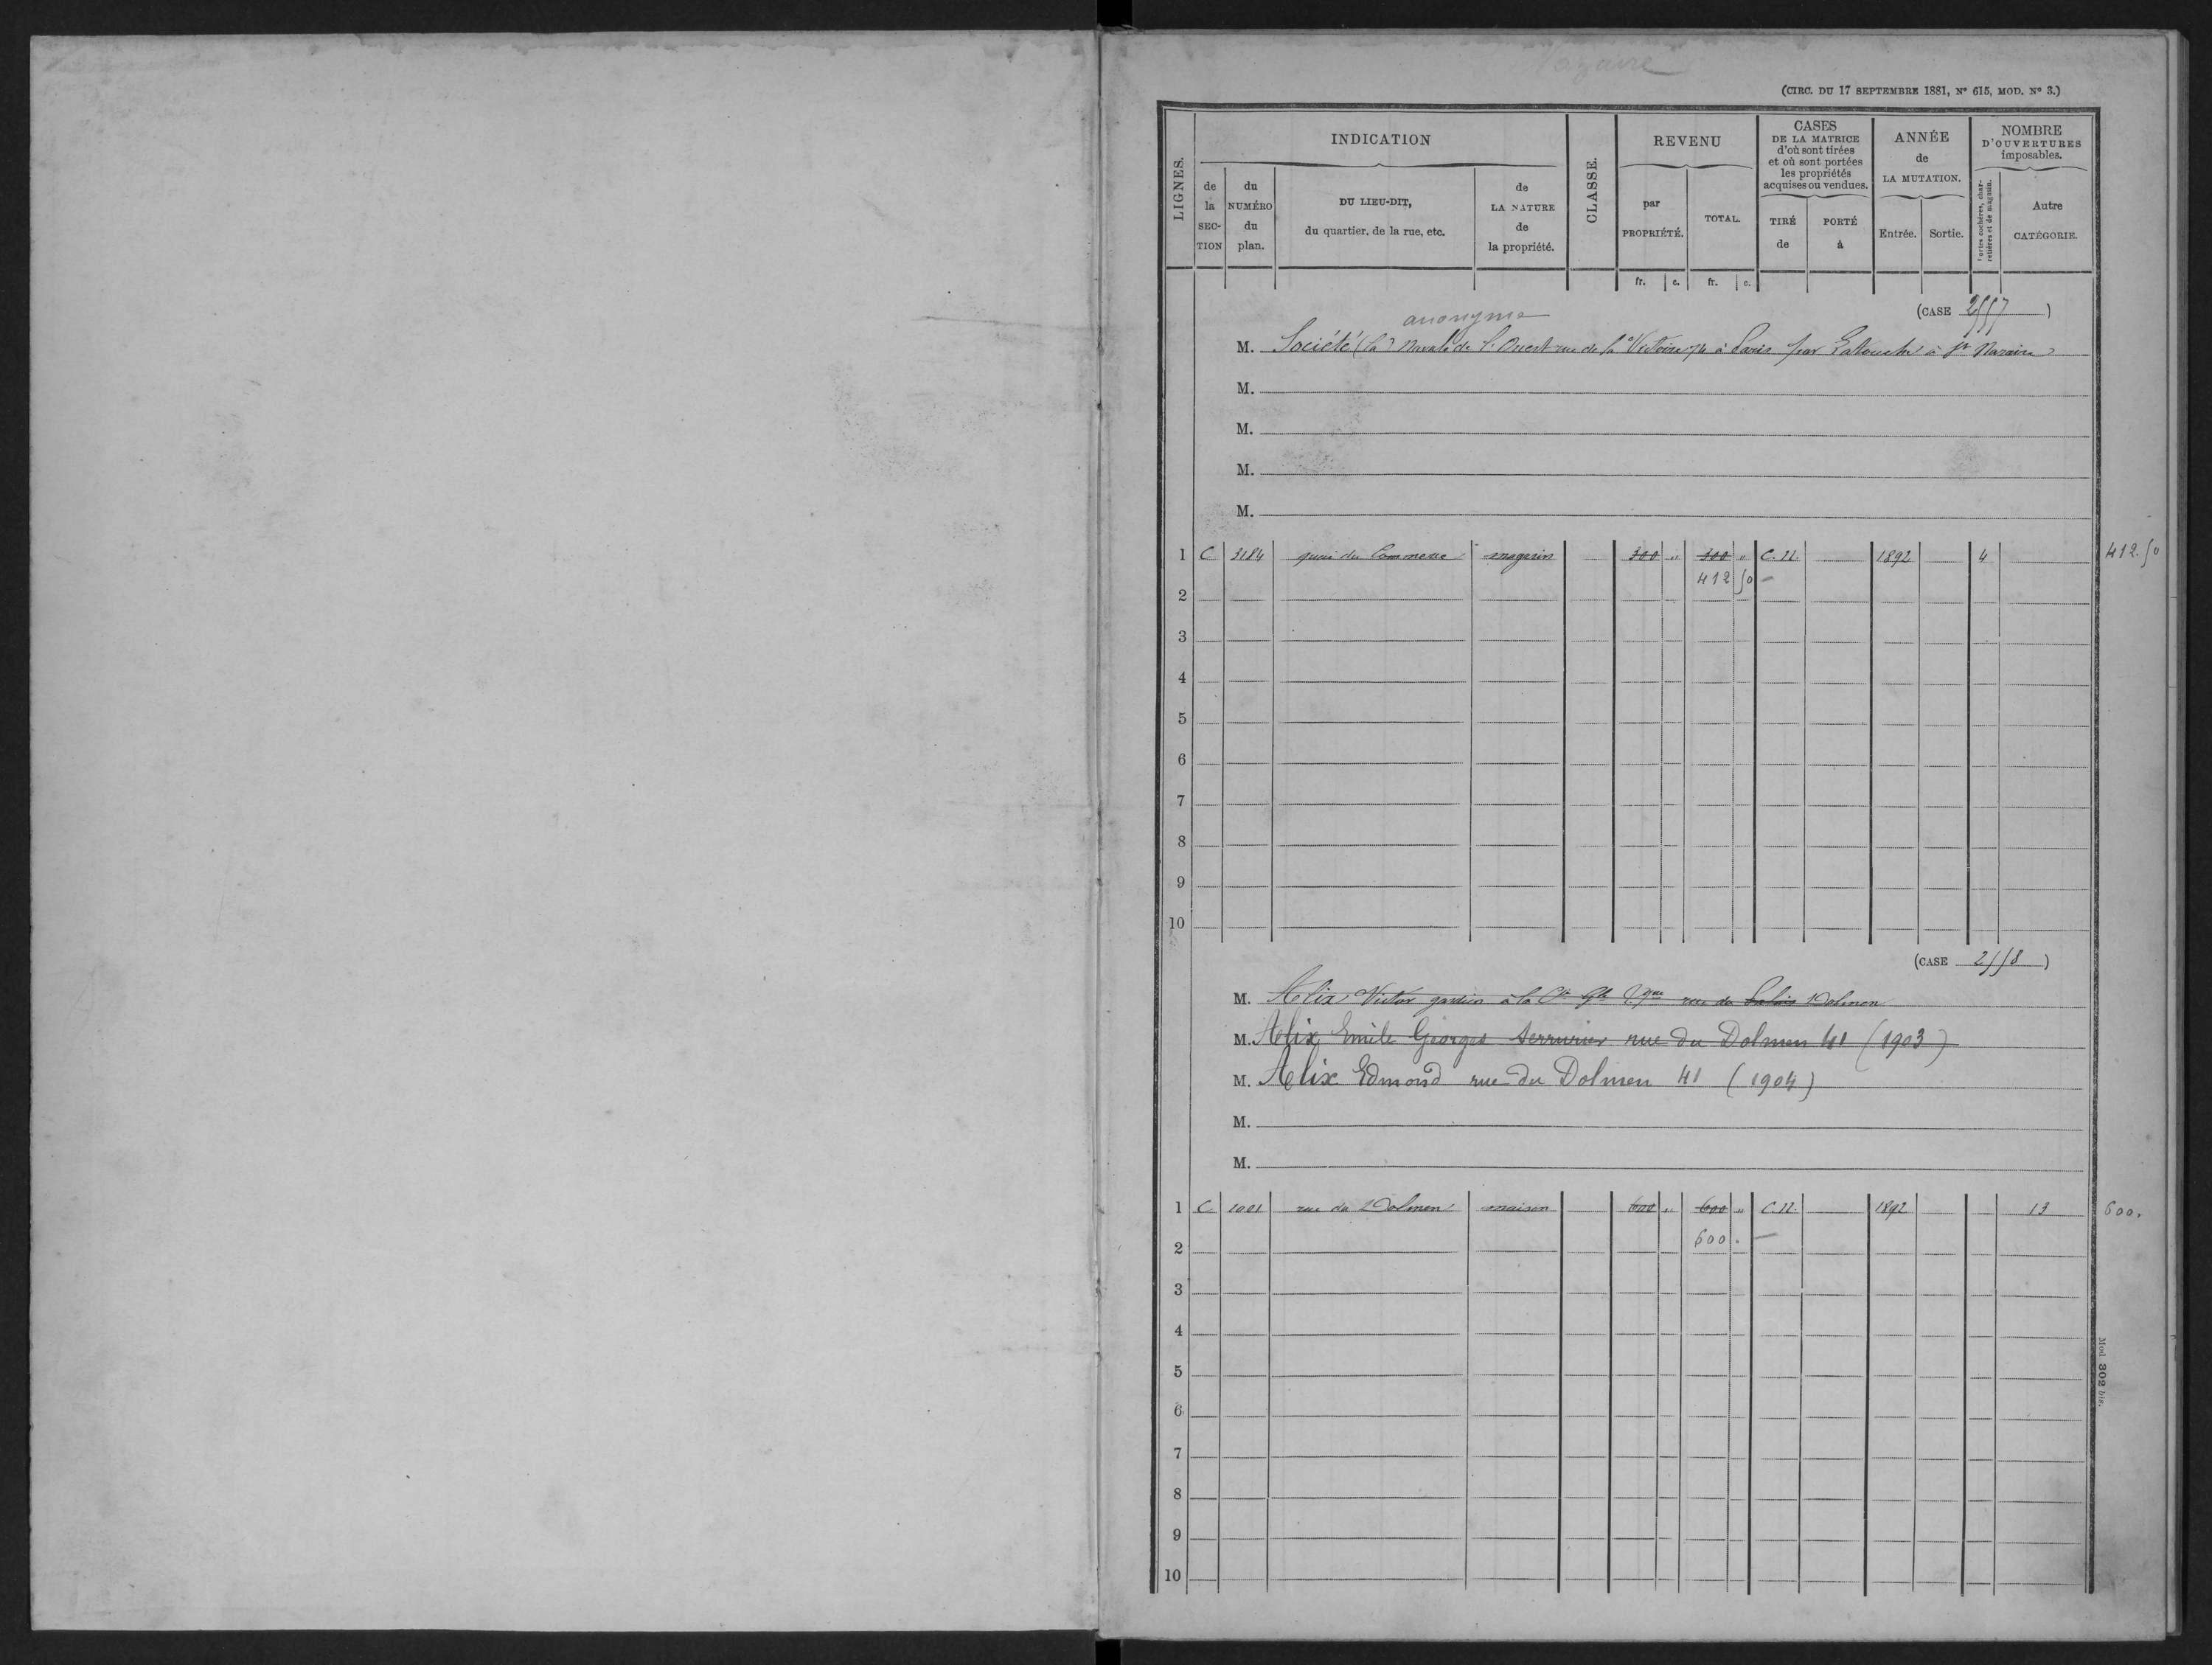 Nazaire
(CIRC. DU 17 SEPTEMBRE 1881, N° 615, MOD. N° 3.)
LIGNES.
INDICATION
de la SEC-TION
du NUMÉRO du plan.
DU LIEU-DIT, du quartier, de la rue, etc.
de LA NATURE de la propriété.
CLASSE.
REVENU
par PROPRIÉTÉ.
TOTAL.
CASES DE LA MATRICE d'où sont tirées et où sont portées les propriétés acquises ou vendues.
TIRÉ de
PORTÉ à
ANNÉE de LA MUTATION.
Entrée.
Sortie.
NOMBRE D'OUVERTURES imposables.
Portes cochères, charretières et de magasin.
Autre CATÉGORIE.
fr. c. fr. c.
(CASE 2557)
anonyme
M. Société (la) Navale de l'Ouest rue de la Victoire 74 à Paris par Latouche à St Nazaire
M.
M.
M.
M.
1 C 3184 quai du Commerce magasin 300 " 300 " C.N. 1892 4 412.50
412 50
2
3
4
5
6
7
8
9
10
(CASE 2558)
M. Alix Victor gardien à la Cie Gle Tque rue du Palais Dolmen
M. Alix Emile Georges Serrurier rue du Dolmen 41 (1903)
M. Alix Edmond rue du Dolmen 41 (1904)
M.
M.
1 C 1001 rue du Dolmen maison 600 " 600 " C.N. 1892 13 600.
600.
2
3
4
5
6
7
8
9
10
Mod. 302 bis.